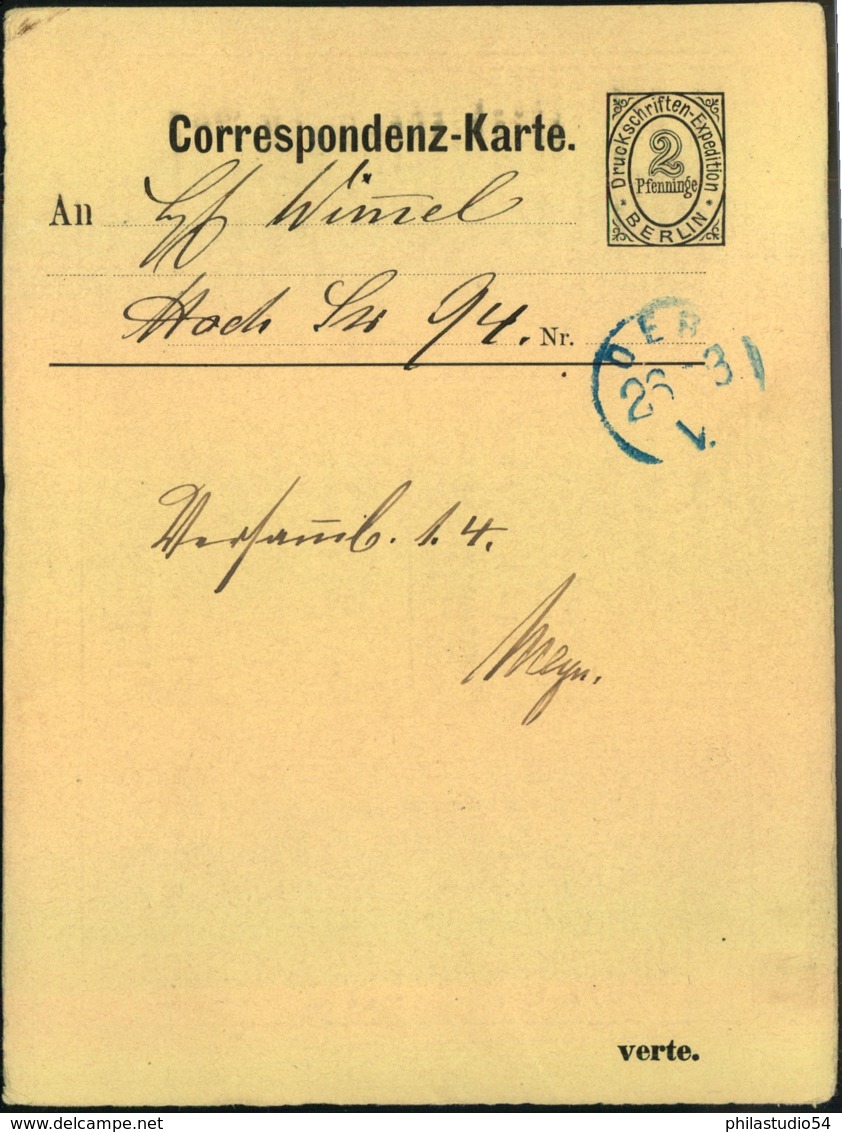 Correspondenz-Karte.
Druckschriften-Expedition
2
Pfenninge
* BERLIN *
An Wim̅el
Hoch Str 94. Nr.
DEB
26 3
V.
Versam̅l. 1. 4.
Meyn.
verte.
www.delcampe.net
philastudio54